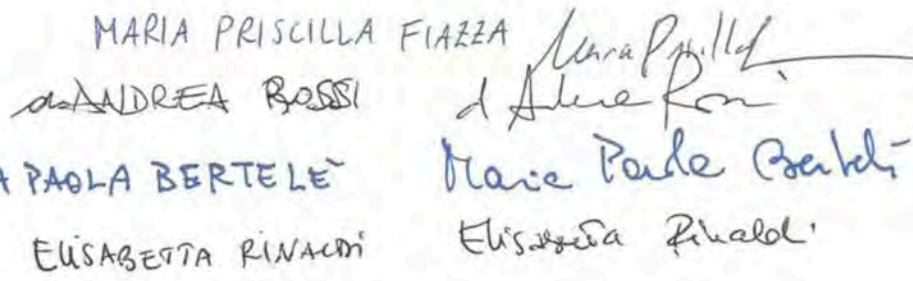 MARIA PRISCILLA FIAZZA
d. ANDREA ROSSI d Andrea Rossi
A PAOLA BERTELÈ Maria Paola Bertelè
ELISABETTA RINALDI Elisabetta Rinaldi